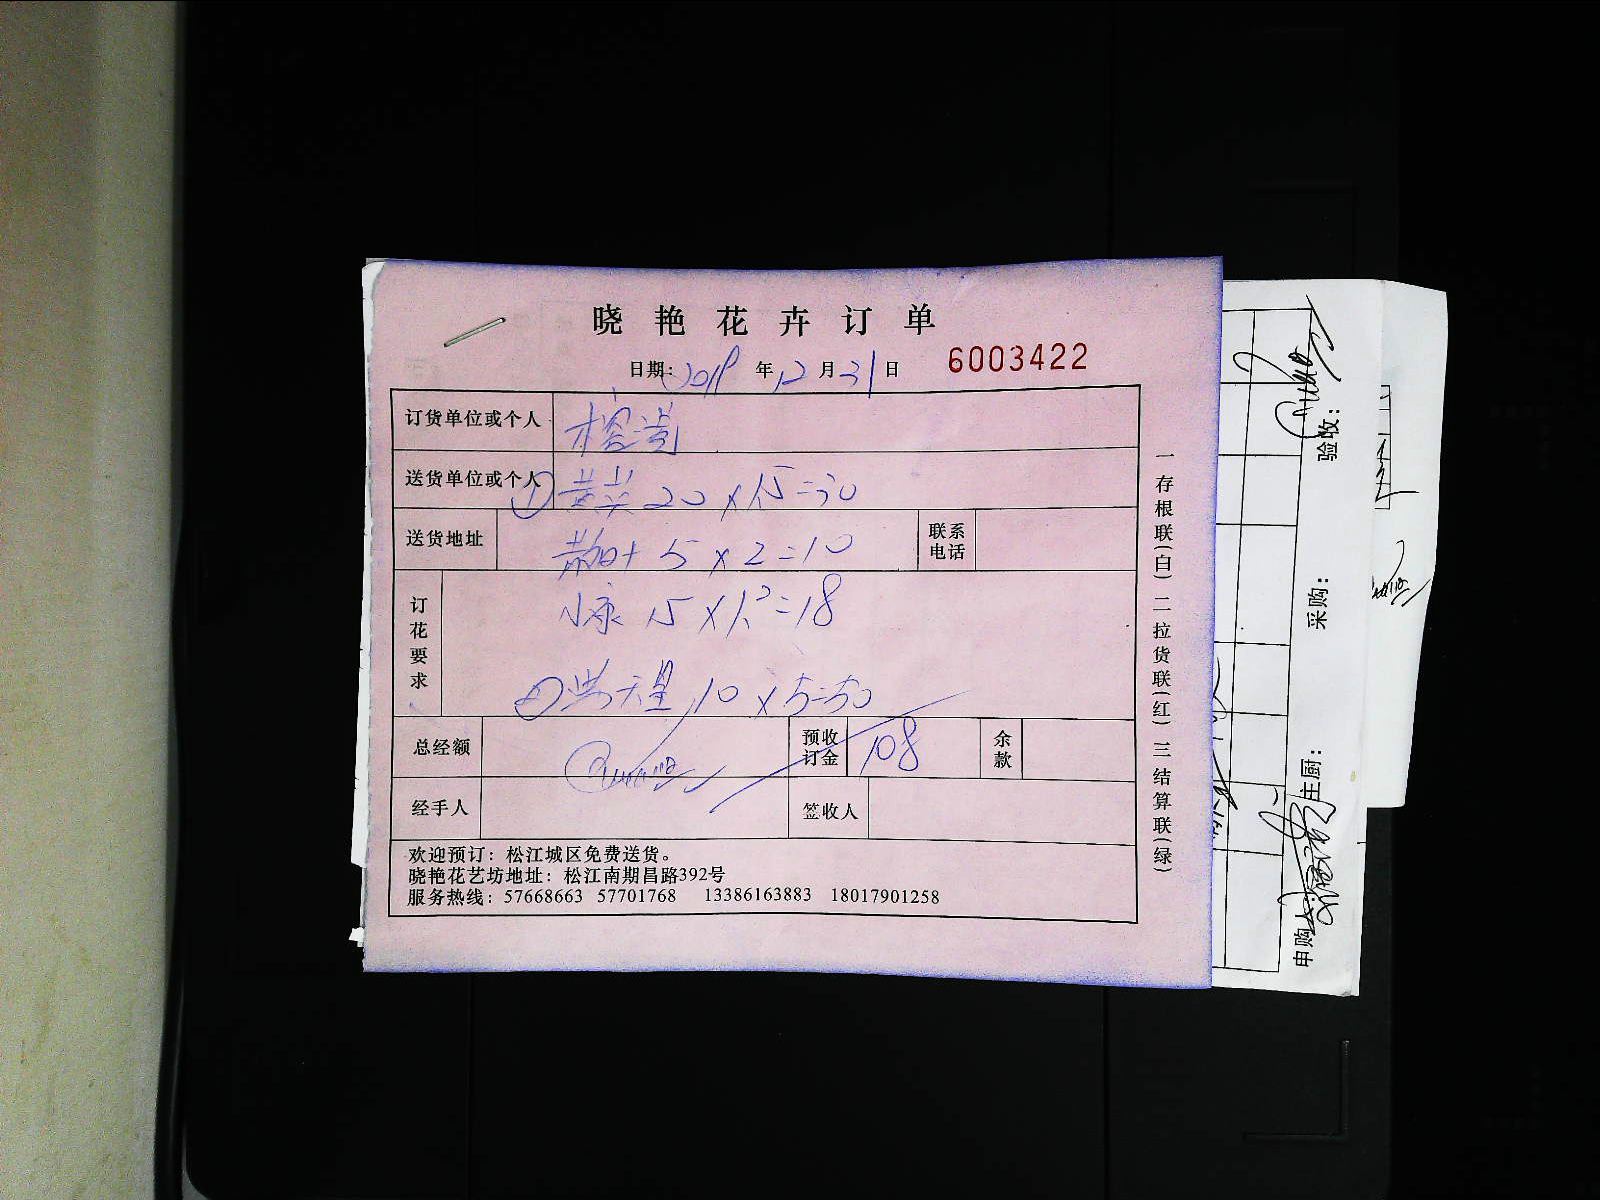 晓艳花卉订单
日期: 2019 年 12 月 31 日 6003422
订货单位或个人
送货单位或个人 ① 20 × 1.5 = 30
送货地址 5 × 2 = 10 联系电话
订花要求 15 × 1.2 = 18
② 满天星 10 × 5 = 50
总经额 预收订金 108 余款
经手人 签收人
欢迎预订: 松江城区免费送货。
晓艳花艺坊地址: 松江南期昌路392号
服务热线: 57668663 57701768 13386163883 18017901258
一存根联(白) 二拉货联(红) 三结算联(绿)
验收:
采购:
庄厨:
申购